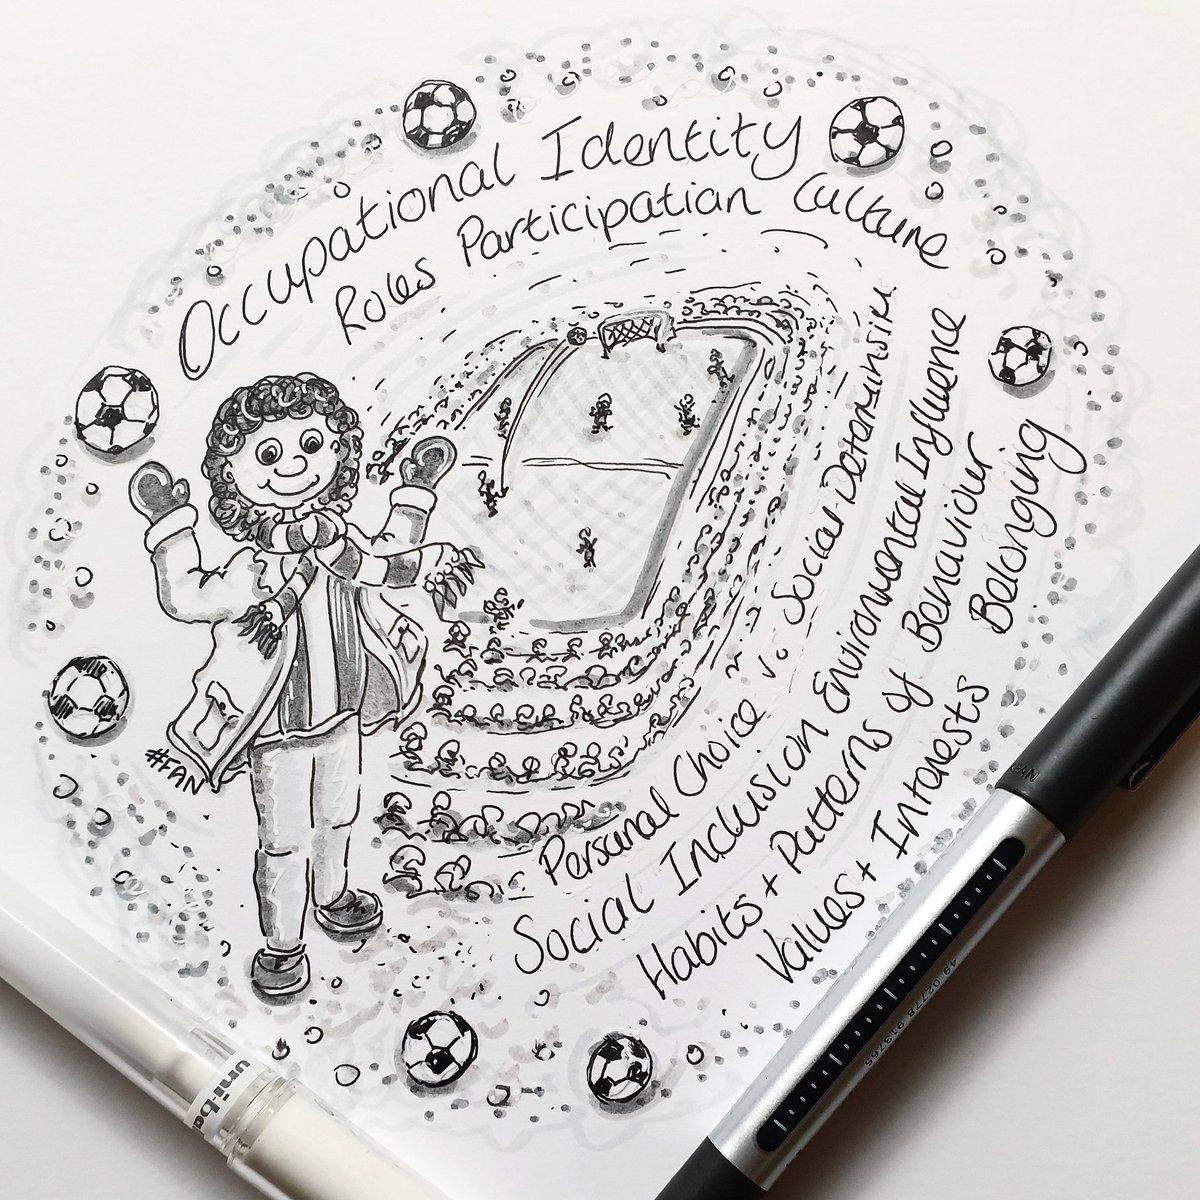 Occupational Identity
Roles Participation Culture
Personal Choice vs Social Determinism
Social Inclusion Environmental Influence
Habits + Patterns of Behaviour
Values + Interests Belonging
#FAN
uni-ba
49 02778 913765